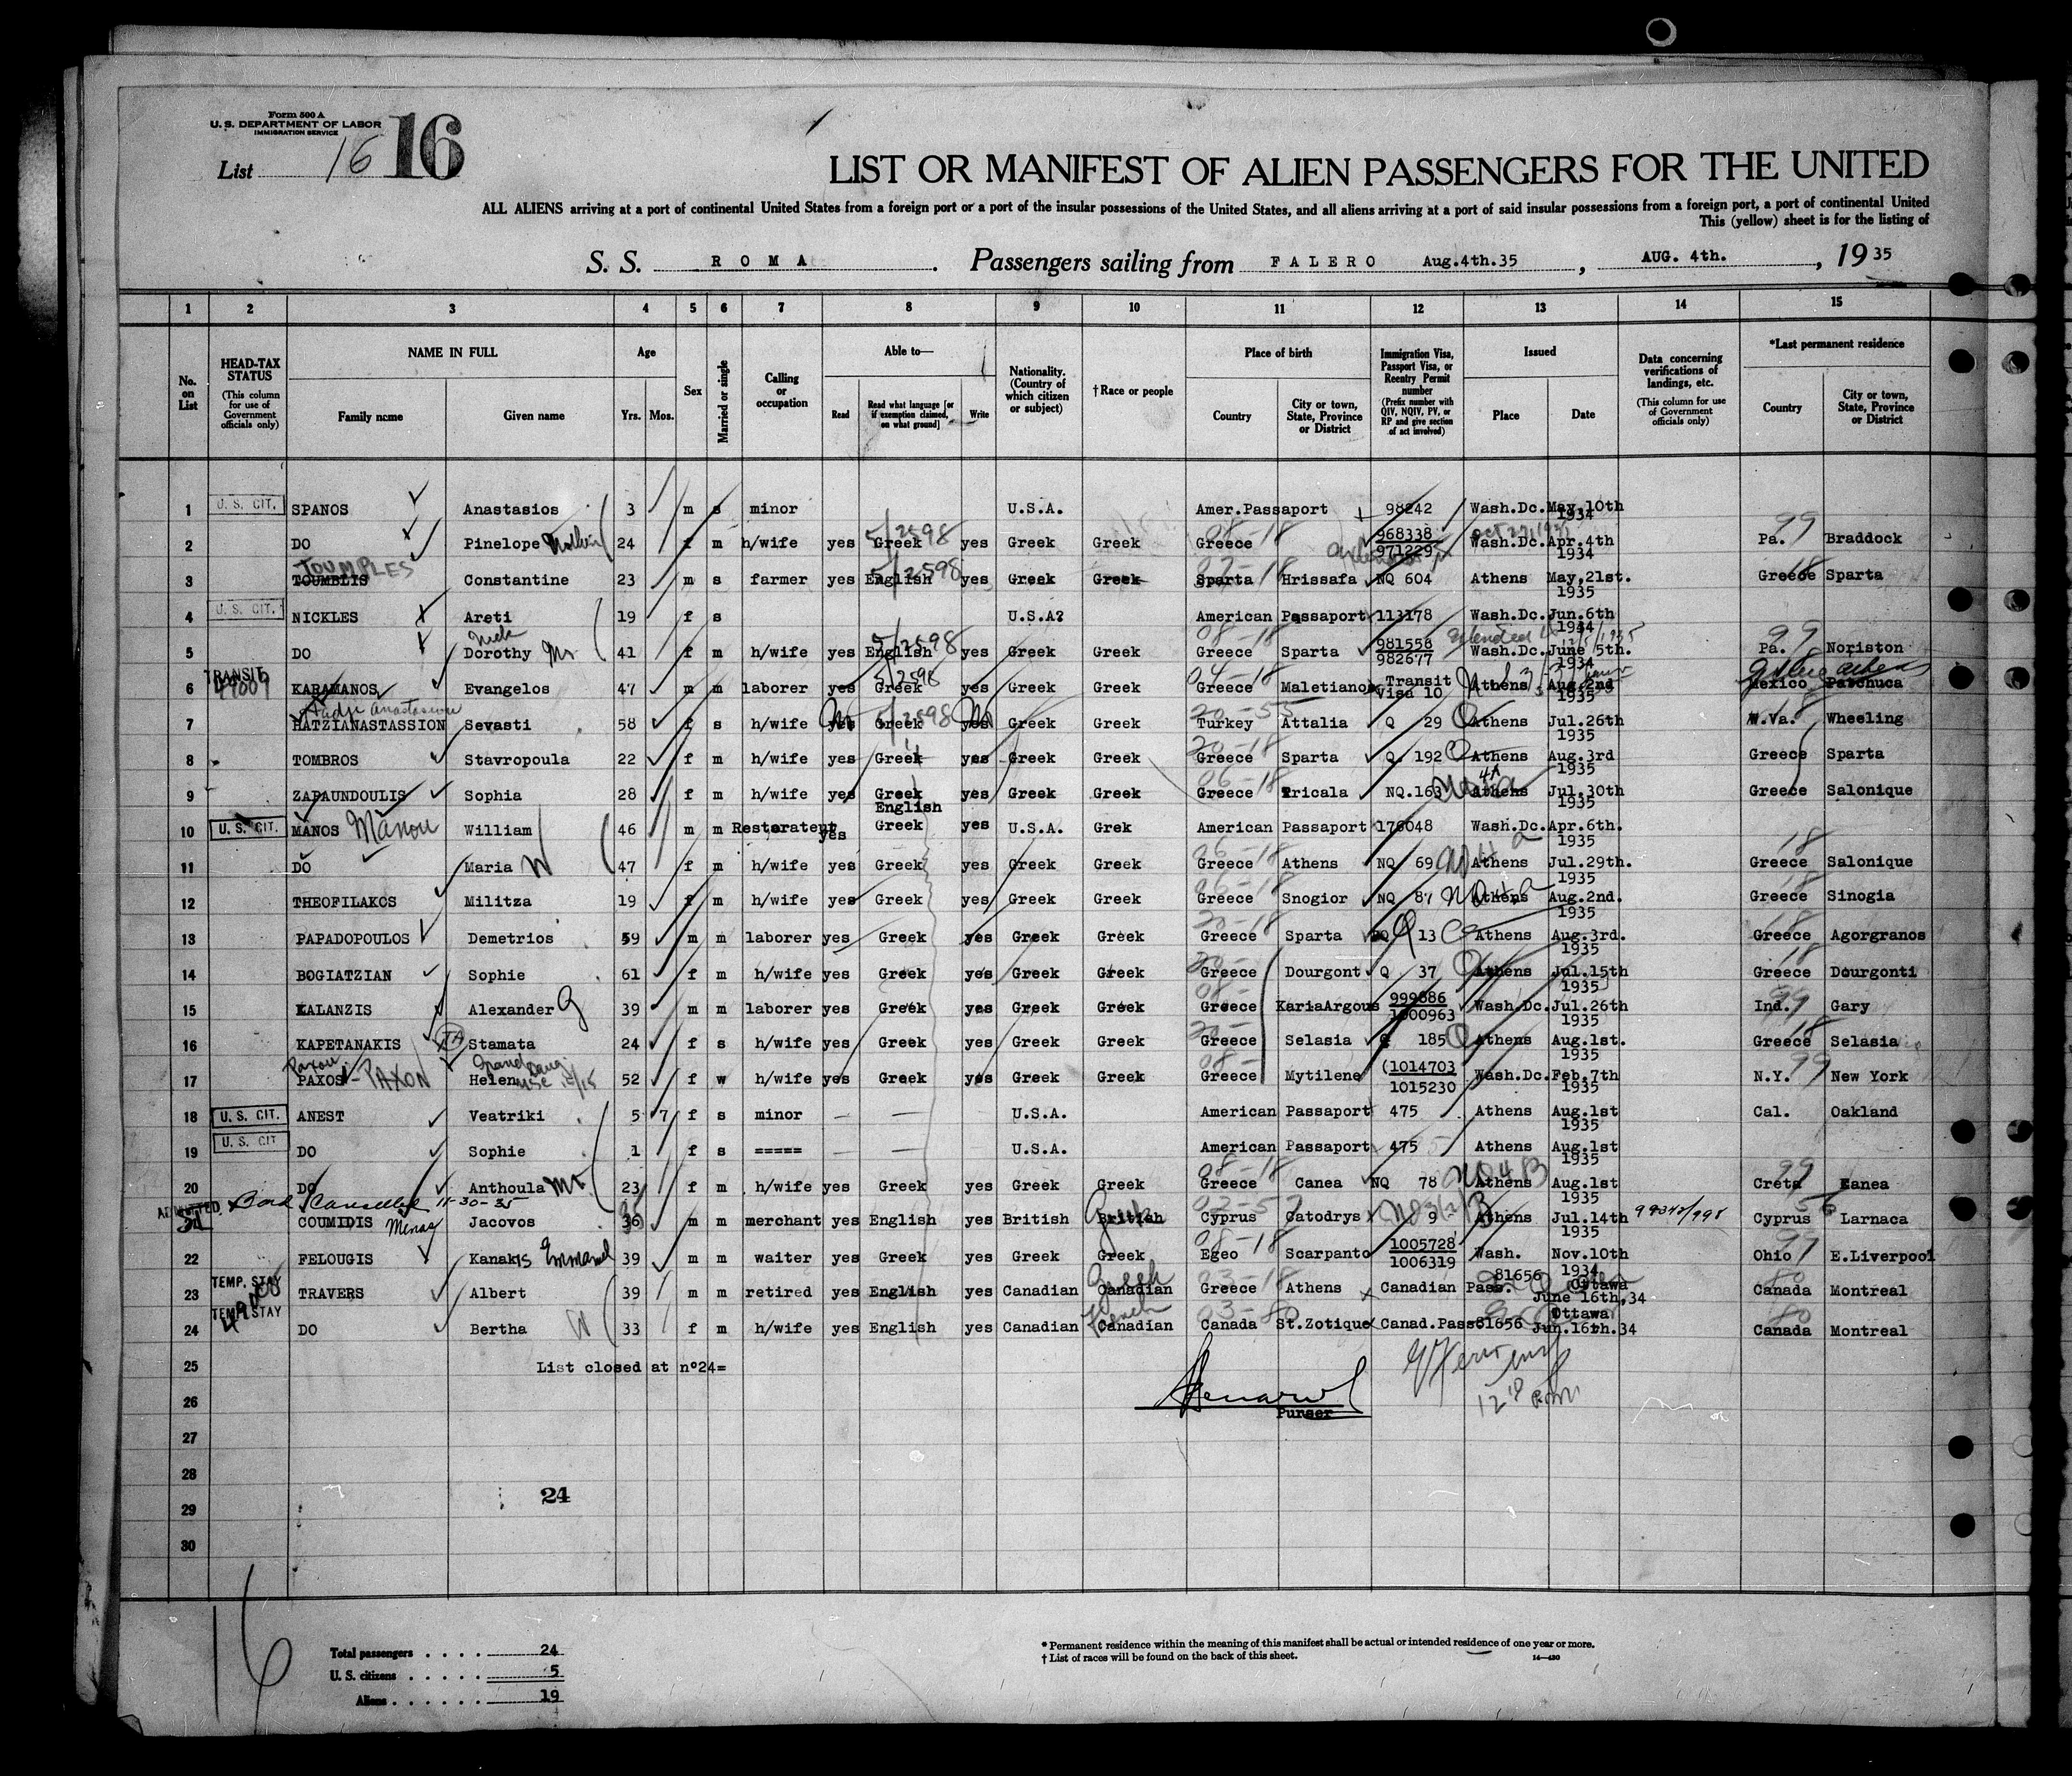 Form 500 A
U. S. DEPARTMENT OF LABOR
IMMIGRATION SERVICE
List 16 16
LIST OR MANIFEST OF ALIEN PASSENGERS FOR THE UNITED
ALL ALIENS arriving at a port of continental United States from a foreign port or a port of the insular possessions of the United States, and all aliens arriving at a port of said insular possessions from a foreign port, a port of continental United
This (yellow) sheet is for the listing of
S. S. ROMA. Passengers sailing from FALERO Aug.4th.35, AUG. 4th., 19 35
1 2 3 4 5 6 7 8 9 10 11 12 13 14 15
No. on List
HEAD-TAX STATUS (This column for use of Government officials only)
NAME IN FULL Family name Given name
Age Yrs. Mos.
Sex
Married or single
Calling or occupation
Able to— Read Read what language [or if exemption claimed, on what ground] Write
Nationality. (Country of which citizen or subject)
†Race or people
Place of birth Country City or town, State, Province or District
Immigration Visa, Passport Visa, or Reentry Permit number (Prefix number with QIV, NQIV, PV, or RP and give section of act involved)
Issued Place Date
Data concerning verifications of landings, etc. (This column for use of Government officials only)
*Last permanent residence Country City or town, State, Province or District
1 U. S. CIT. SPANOS Anastasios 3 m s minor U.S.A. Amer.Passaport 98242 Wash.Dc. May,10th 1934
2 DO Pinelope 24 f m h/wife yes Greek 5/2598 yes Greek Greek Greece 08-18 968338 971229 Wash.Dc. Apr.4th 1934 Pa. 99 Braddock
3 TOUMBLIS TOUMPLES Constantine 23 m s farmer yes English 5/2598 yes Greek Greek Sparta Hrissafa NQ 604 Athens May,21st. 1935 Greece 18 Sparta
4 U. S. CIT. NICKLES Areti 19 f s U.S.A? American Passaport 113178 Wash.Dc. Jun.6th 1934
5 DO Dorothy 41 f m h/wife yes English 5/2598 yes Greek Greek Greece 08-18 Sparta 981556 982677 Wash.Dc. June 5th. 1934 Pa. 99 Noriston
6 TRANSIT KARAMANOS Evangelos 47 m m laborer yes Greek 5/2598 yes Greek Greek Greece 04-18 Maletiano Transit Visa 10 Athens Aug.2nd 1935 Mexico Patchuca
7 HATZIANASTASSION Sevasti 58 f s h/wife yes Greek 5/2598 yes Greek Greek Turkey Attalia Q 29 Athens Jul.26th 1935 W.Va. Wheeling
8 TOMBROS Stavropoula 22 f m h/wife yes Greek yes Greek Greek Greece 20-18 Sparta Q. 192 Athens Aug.3rd 1935 Greece Sparta
9 ZAPAUNDOULIS Sophia 28 f m h/wife yes Greek English yes Greek Greek Greece 06-18 Tricala NQ.163 Athens Jul.30th 1935 Greece Salonique
10 U. S. CIT. MANOS Manou William 46 m m Restorateur yes Greek yes U.S.A. Grek American Passaport 176048 Wash.Dc. Apr.6th. 1935
11 DO Maria W 47 f m h/wife yes Greek yes Greek Greek Greece 06-18 Athens NQ 69 Athens Jul.29th. 1935 Greece 18 Salonique
12 THEOFILAKOS Militza 19 f m h/wife yes Greek yes Greek Greek Greece 06-18 Snogior NQ 87 Athens Aug.2nd. 1935 Greece 18 Sinogia
13 PAPADOPOULOS Demetrios 59 m m laborer yes Greek yes Greek Greek Greece 20-18 Sparta 13 Athens Aug.3rd. 1935 Greece 18 Agorgranos
14 BOGIATZIAN Sophie 61 f m h/wife yes Greek yes Greek Greek Greece 20- Dourgont Q 37 Athens Jul.15th 1935 Greece 18 Dourgonti
15 KALANZIS Alexander G 39 m m laborer yes Greek yes Greek Greek Greece 08- KariaArgous 999686 1000963 Wash.Dc. Jul.26th 1935 Ind. 99 Gary
16 KAPETANAKIS Stamata 24 f s h/wife yes Greek yes Greek Greek Greece 20- Selasia Q 185 Athens Aug.1st. 1935 Greece 18 Selasia
17 PAXOS - PAXON Helen 52 f w h/wife yes Greek yes Greek Greek Greece 08- Mytilene (1014703 1015230 Wash.Dc. Feb.7th 1935 N.Y. 99 New York
18 U. S. CIT. ANEST Veatriki 5 7 f s minor — — U.S.A. American Passaport 475 Athens Aug.1st 1935 Cal. Oakland
19 U. S. CIT DO Sophie 1 f s ===== — — U.S.A. American Passaport 475 Athens Aug.1st 1935
20 DO Anthoula 23 f m h/wife yes Greek yes Greek Greek Greece 08-18 Canea NQ 78 Athens Aug.1st 1935 Creta 99 Kanea
ADMITTED Bond Cancelled 11-30-35
COUMIDIS Menas Jacovos 36 m m merchant yes English yes British British Greek Cyprus Catodrys 9 Athens Jul.14th 1935 Cyprus Larnaca
22 FELOUGIS Kanakis Emmanel 39 m m waiter yes Greek yes Greek Greek Egeo 08-18 Scarpanto 1005728 1006319 Wash. Nov.10th 1934 Ohio 99 E.Liverpool
23 TEMP. STAY TRAVERS Albert 39 m m retired yes English yes Canadian Canadian Greek Greece 03-18 Athens Canadian Pass. 81656 Ottawa June 16th,34 Canada 80 Montreal
24 TEMP. STAY DO Bertha W 33 f m h/wife yes English yes Canadian Canadian French Canada 03-80 St.Zotique Canad.Pass 81656 Ottawa Jun.16th.34 Canada 80 Montreal
25 List closed at nº24=
26 Purser
27
28
29 24
30
16
Total passengers . . . . 24
U. S. citizens . . . . . 5
Aliens . . . . . . 19
* Permanent residence within the meaning of this manifest shall be actual or intended residence of one year or more.
† List of races will be found on the back of this sheet. 14—430